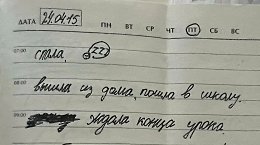 ДАТА 24.04.15 ПН ВТ СР ЧТ ПТ СБ ВС
07:00 спала, zzz
08:00 вышла из дома, пошла в школу.
09:00 ждала конца урока.